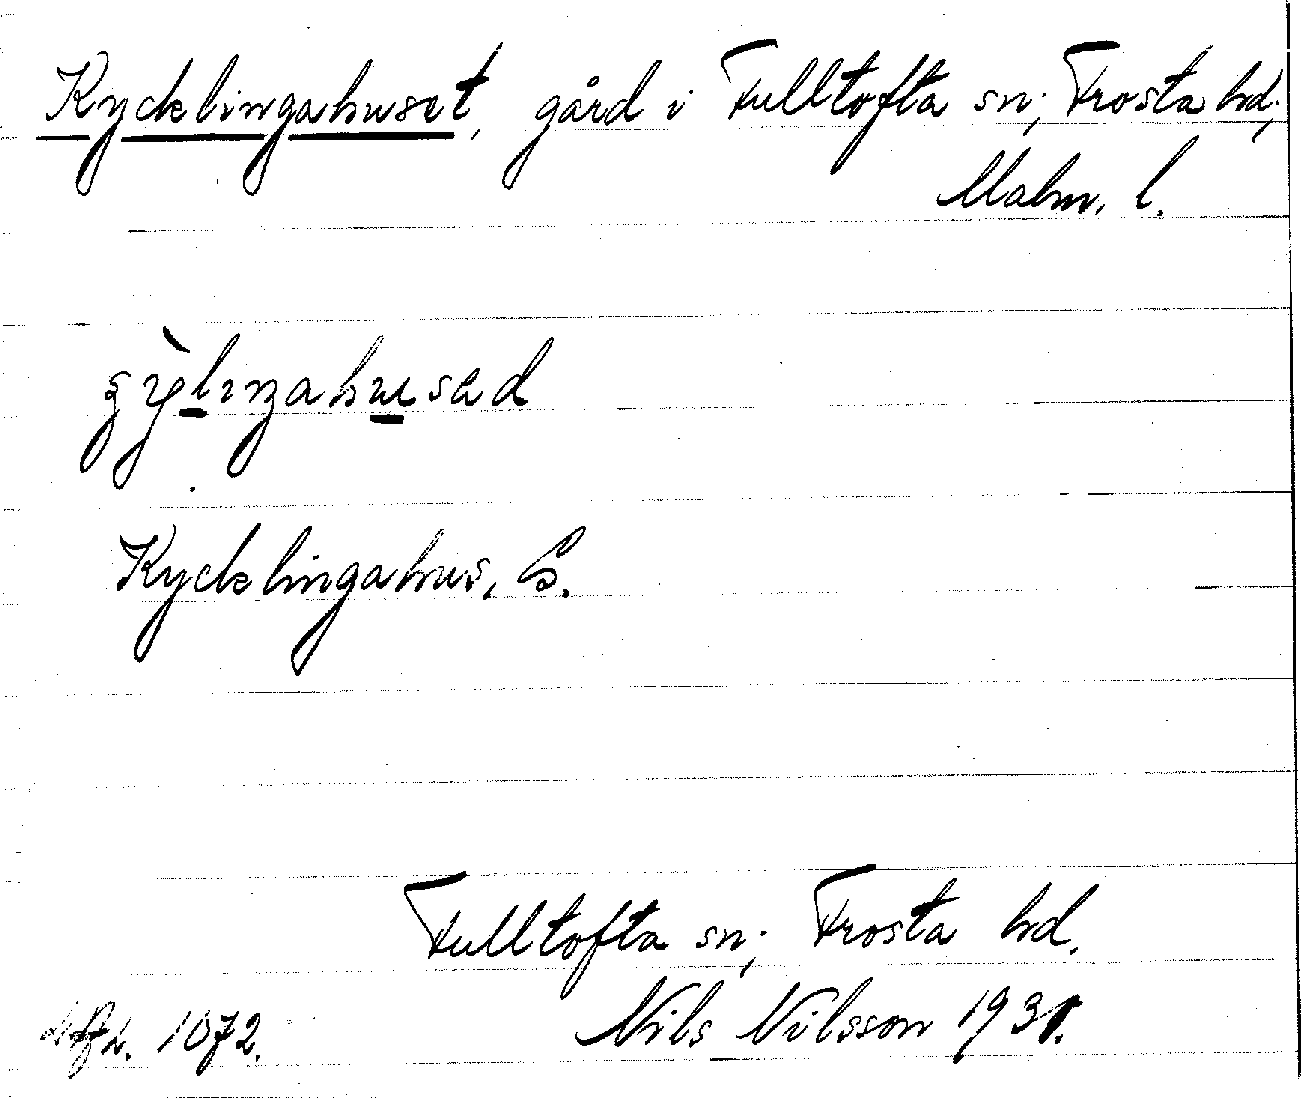 Kycklingahuset, gård i Fulltofta sn; Frosta hd;
Malm. l.
Kycklingahus, G.
Fulltofta sn; Frosta hd.
Nils Nilsson 1931.
1072.